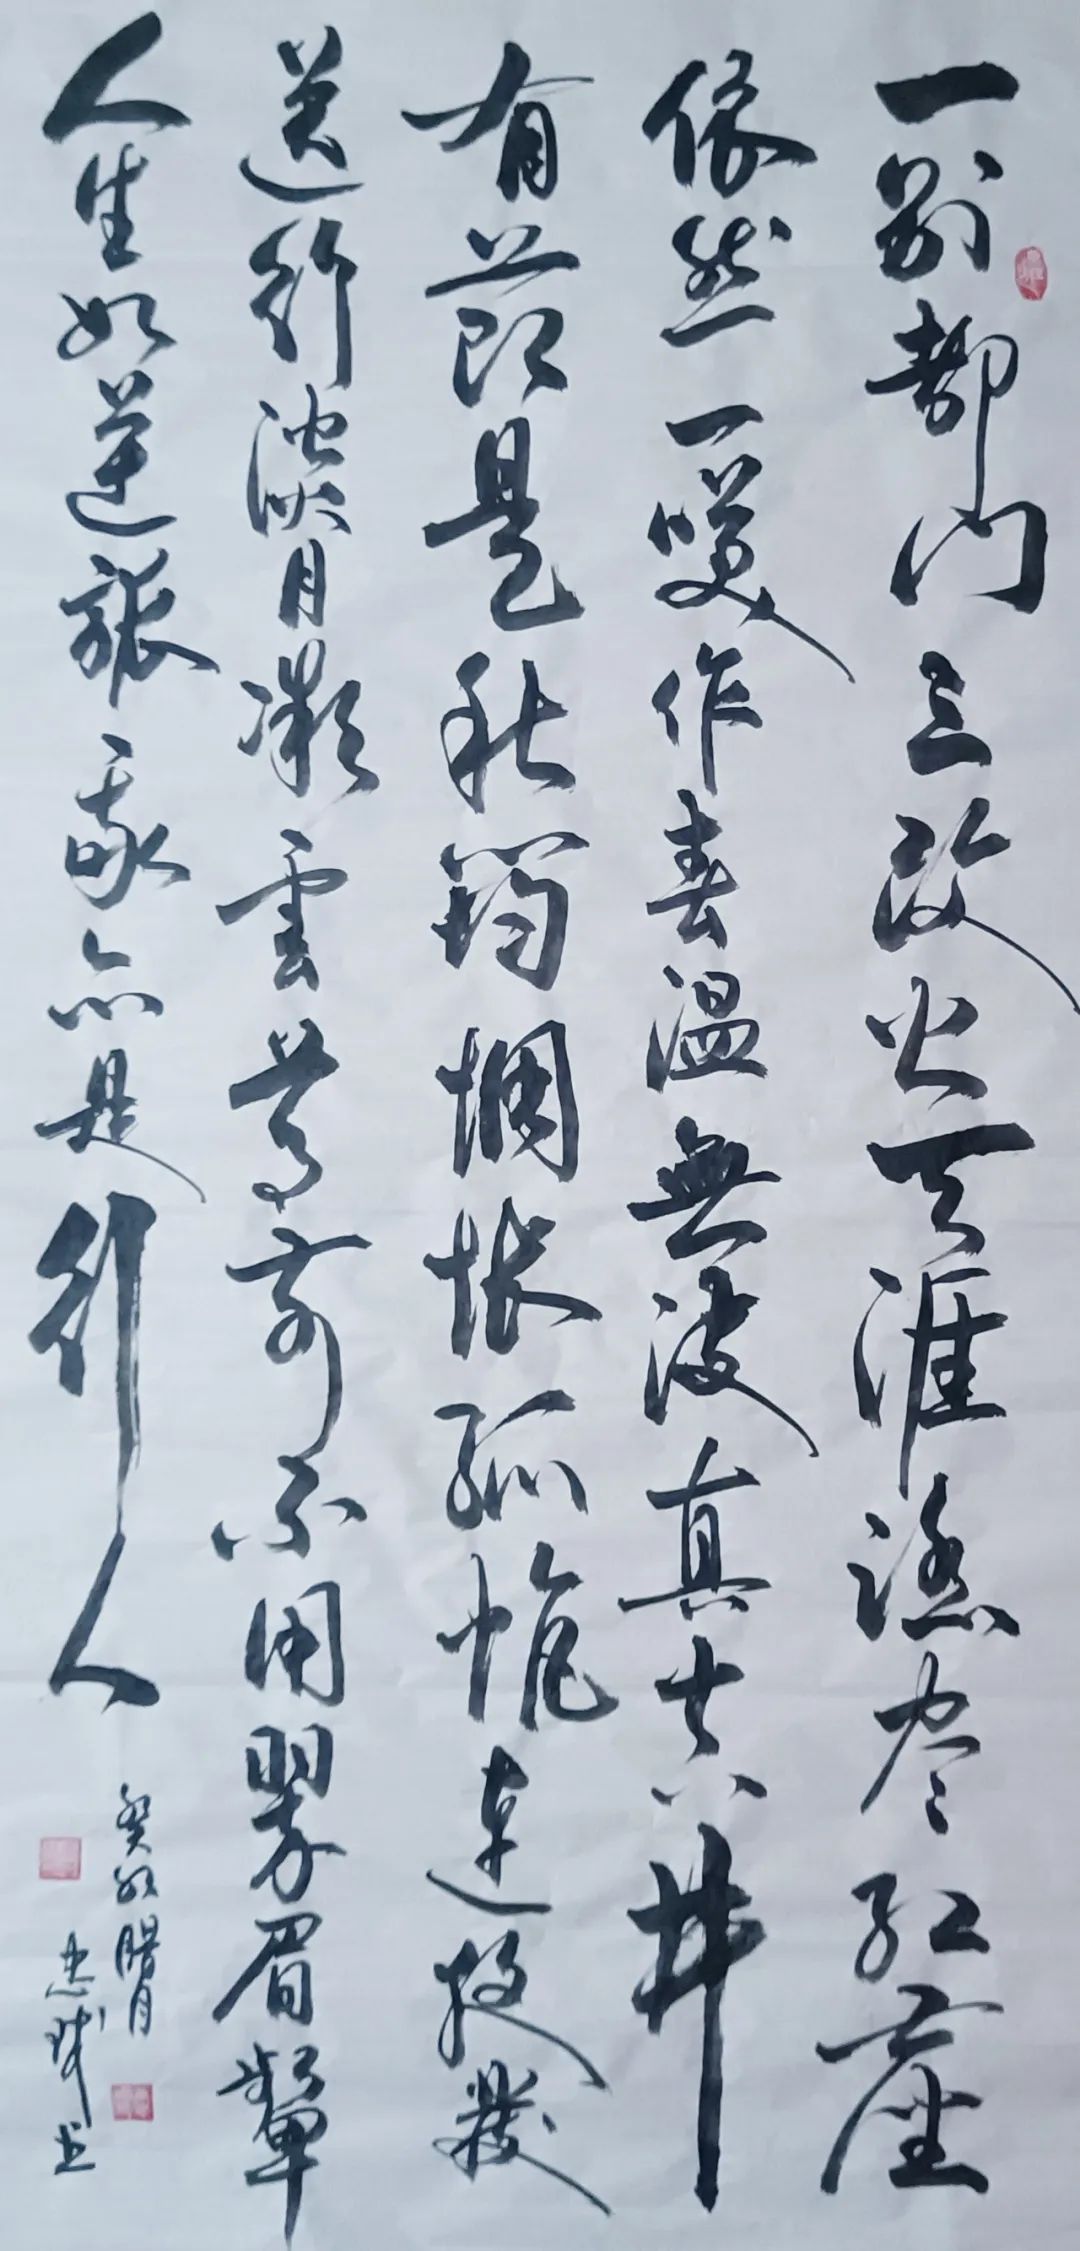 一别都门三改火天涯踏尽红尘
依然一笑作春温無波真古井
有节是秋筠惆怅孤帆连夜发
送行淡月微雲尊前不用翠眉颦
人生如逆旅我亦是行人
癸卯腊月